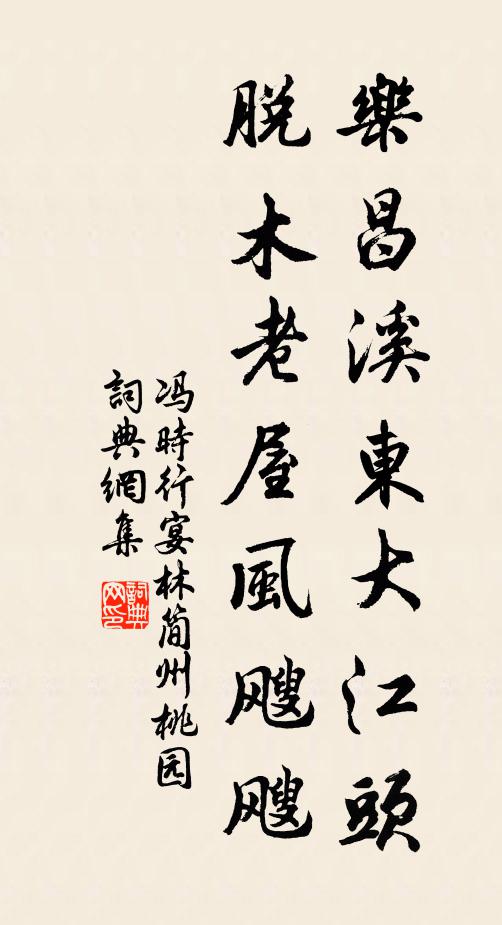 樂昌溪東大江頭
脱木老屋風颼颼
冯時行宴林简州桃园
詞典網集
詞典网印